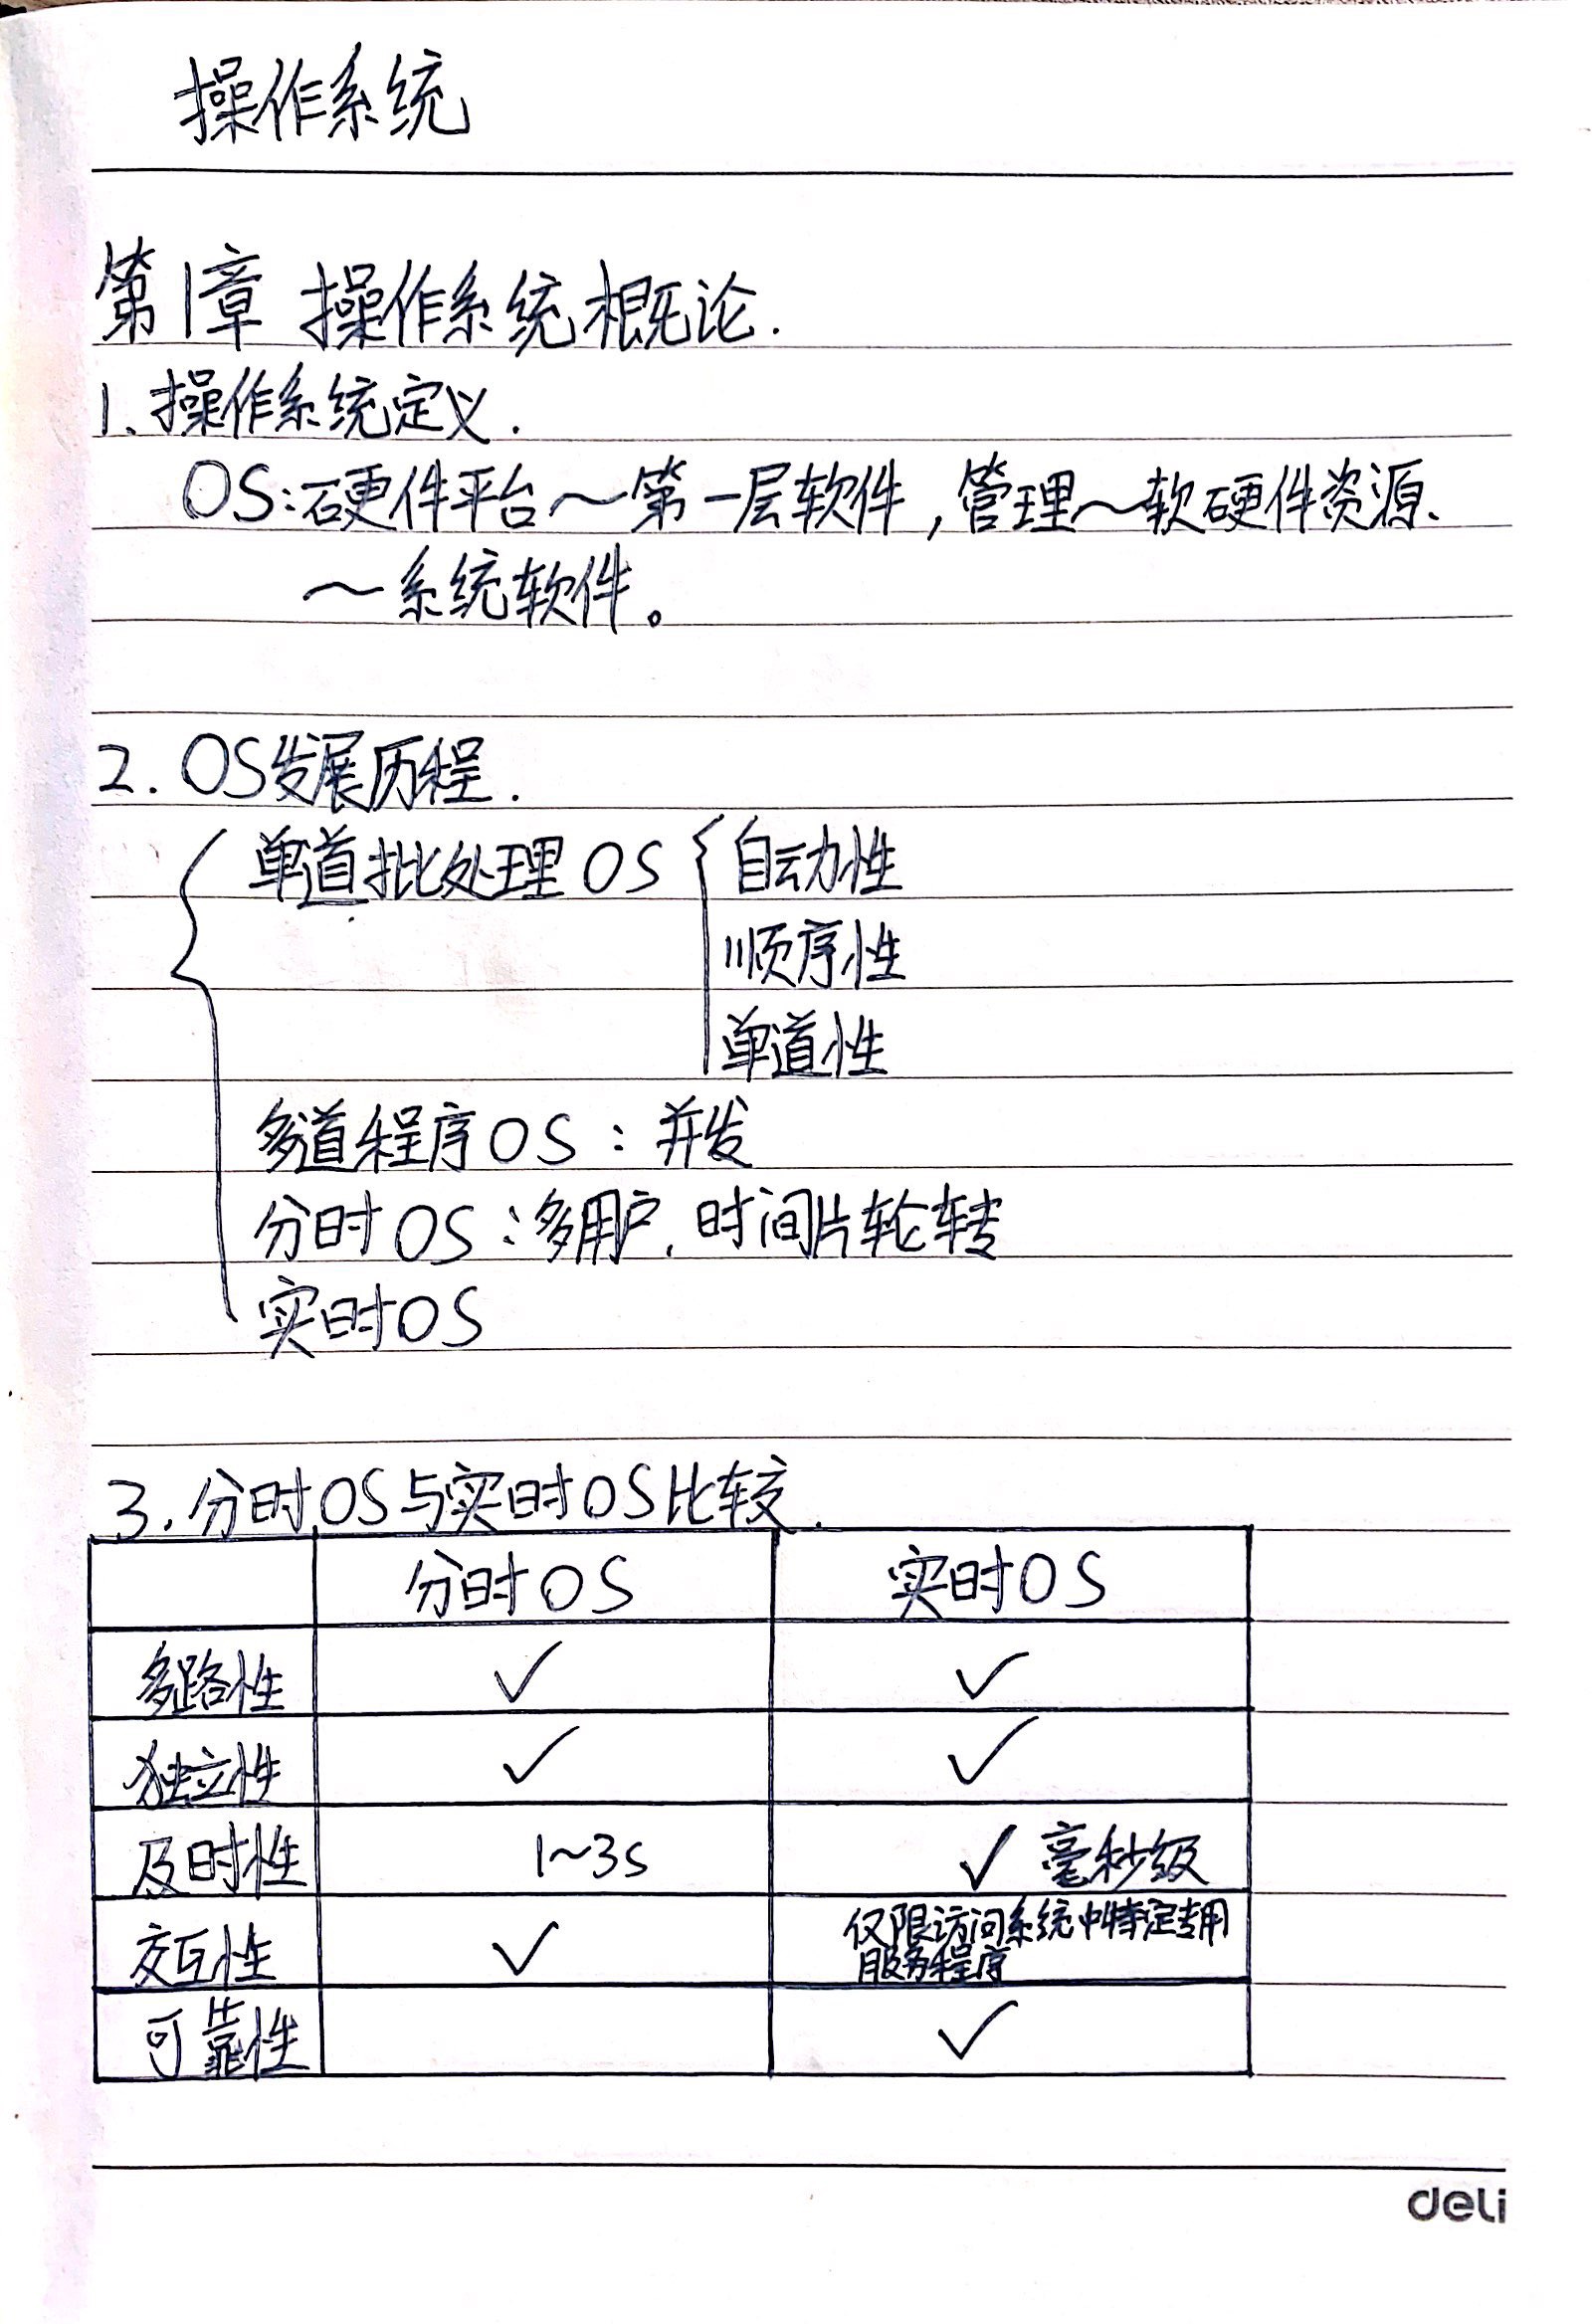 操作系统
第1章 操作系统概论.
1、操作系统定义.
OS:硬件平台～第一层软件,管理～软硬件资源、
～系统软件。
2. OS发展历程.
单道批处理OS { 自动性
顺序性
单道性
多道程序OS：并发
分时OS：多用户,时间片轮转
实时OS
3.分时OS与实时OS比较.
分时OS 实时OS
多路性 ✓ ✓
独立性 ✓ ✓
及时性 1~3s ✓ 毫秒级
交互性 ✓ 仅限访问系统中特定专用
服务程序
可靠性 ✓
deli